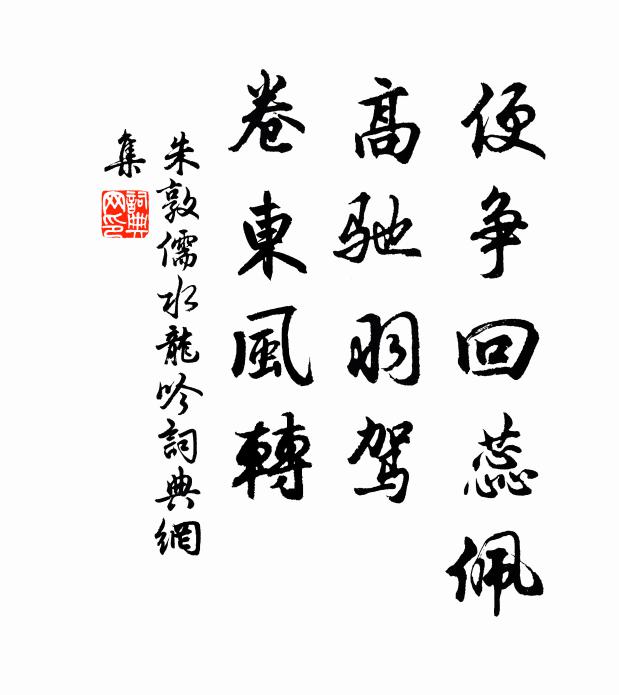 便争回蕊佩
高馳羽駕
卷東風轉
朱敦儒水龍吟詞典網
集
詞典
网印